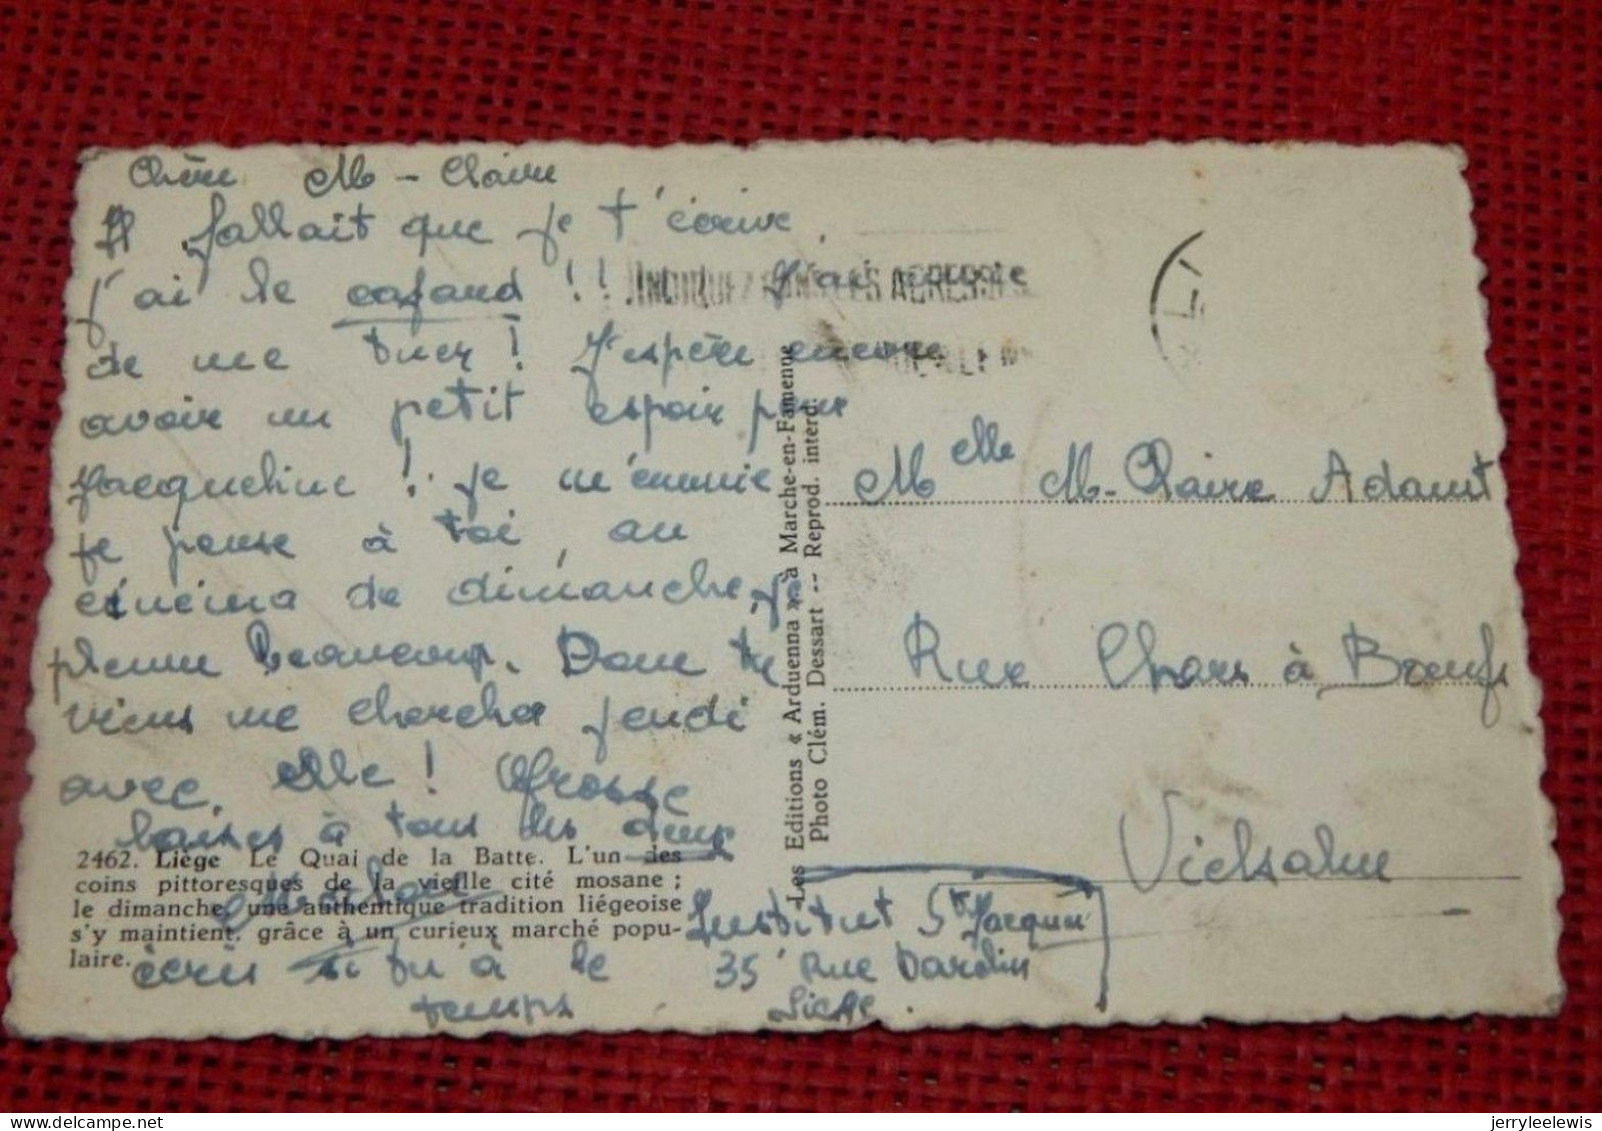 Chère M-Claire
Il fallait que je t'écrive
j'ai le cafard !! J'ai
de me tuer ! J'espère encore
avoir un petit espoir pour
Jacqueline ! je m'ennuie
je pense à toi, au
cinéma de dimanche, je
pleure beaucoup. Donc tu
viens me chercher jeudi
avec elle ! Grosse
baises à tous les deux
écris si tu à le
temps
INDIQUEZ DANS LES ADRESSES
2462. Liège Le Quai de la Batte. L'un des
coins pittoresques de la vieille cité mosane ;
le dimanche, une authentique tradition liégeoise
s'y maintient, grâce à un curieux marché popu-
laire.
Les Editions « Arduenna » à Marche-en-Famenne
Photo Clém. Dessart -- Reprod. interd.
Melle M-Claire Adant
Rue Chars à Bœufs
Vielsalm
Institut St Jacques
35 Rue Dardin
Liège.
jerryleelewis